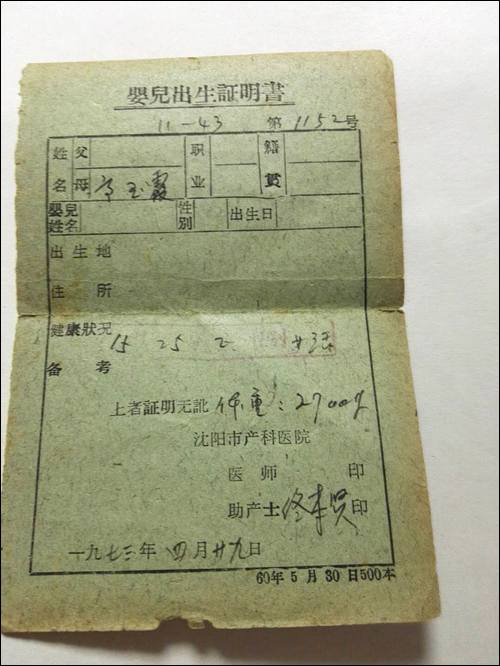 嬰兒出生証明書
11-43 第1152号
姓 父 职 籍
名 母 玉霞 业 貫
嬰兒姓名 性別 出生日
出生地
住所
健康狀况
15 25 2
备考
上者証明无訛 体重：2700
沈阳市产科医院
医师 印
助产士 印
一九七三年 四月廿九日
60年5月30日500本